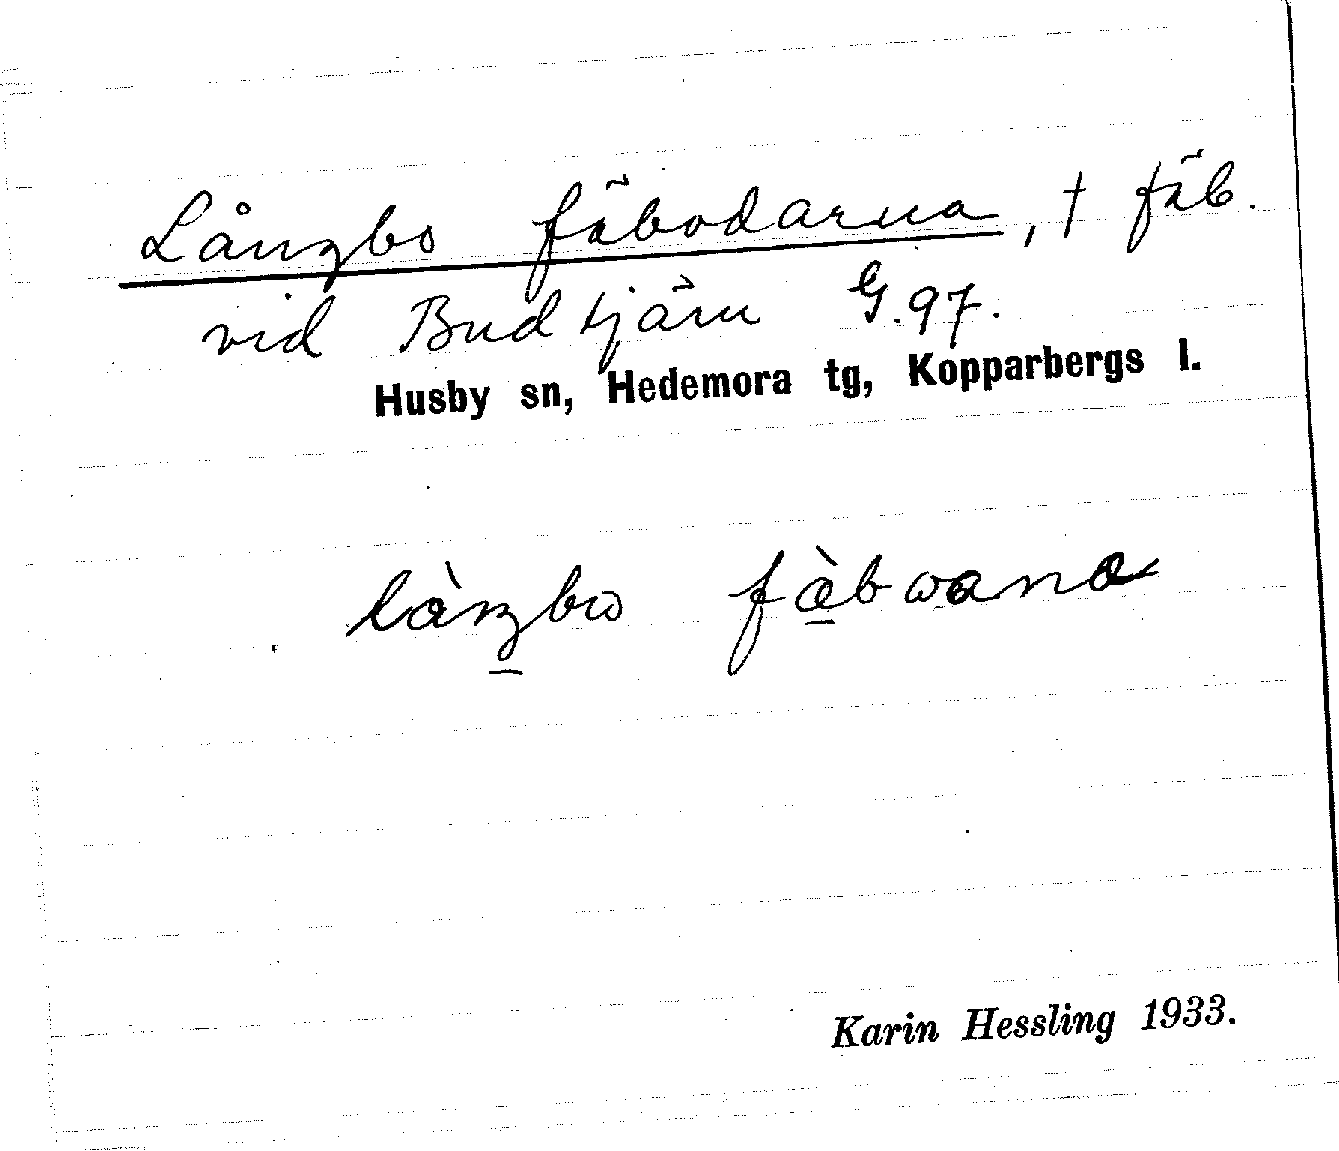 Långbo fäbodarna, † fäb.
vid Budtjärn G.97.
Husby sn, Hedemora tg, Kopparbergs l.
Karin Hessling 1933.